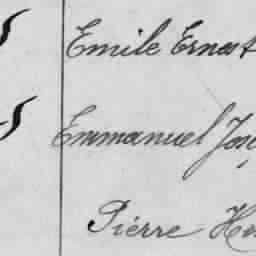 Emile Ernest
Emmanuel Jos
Pierre He